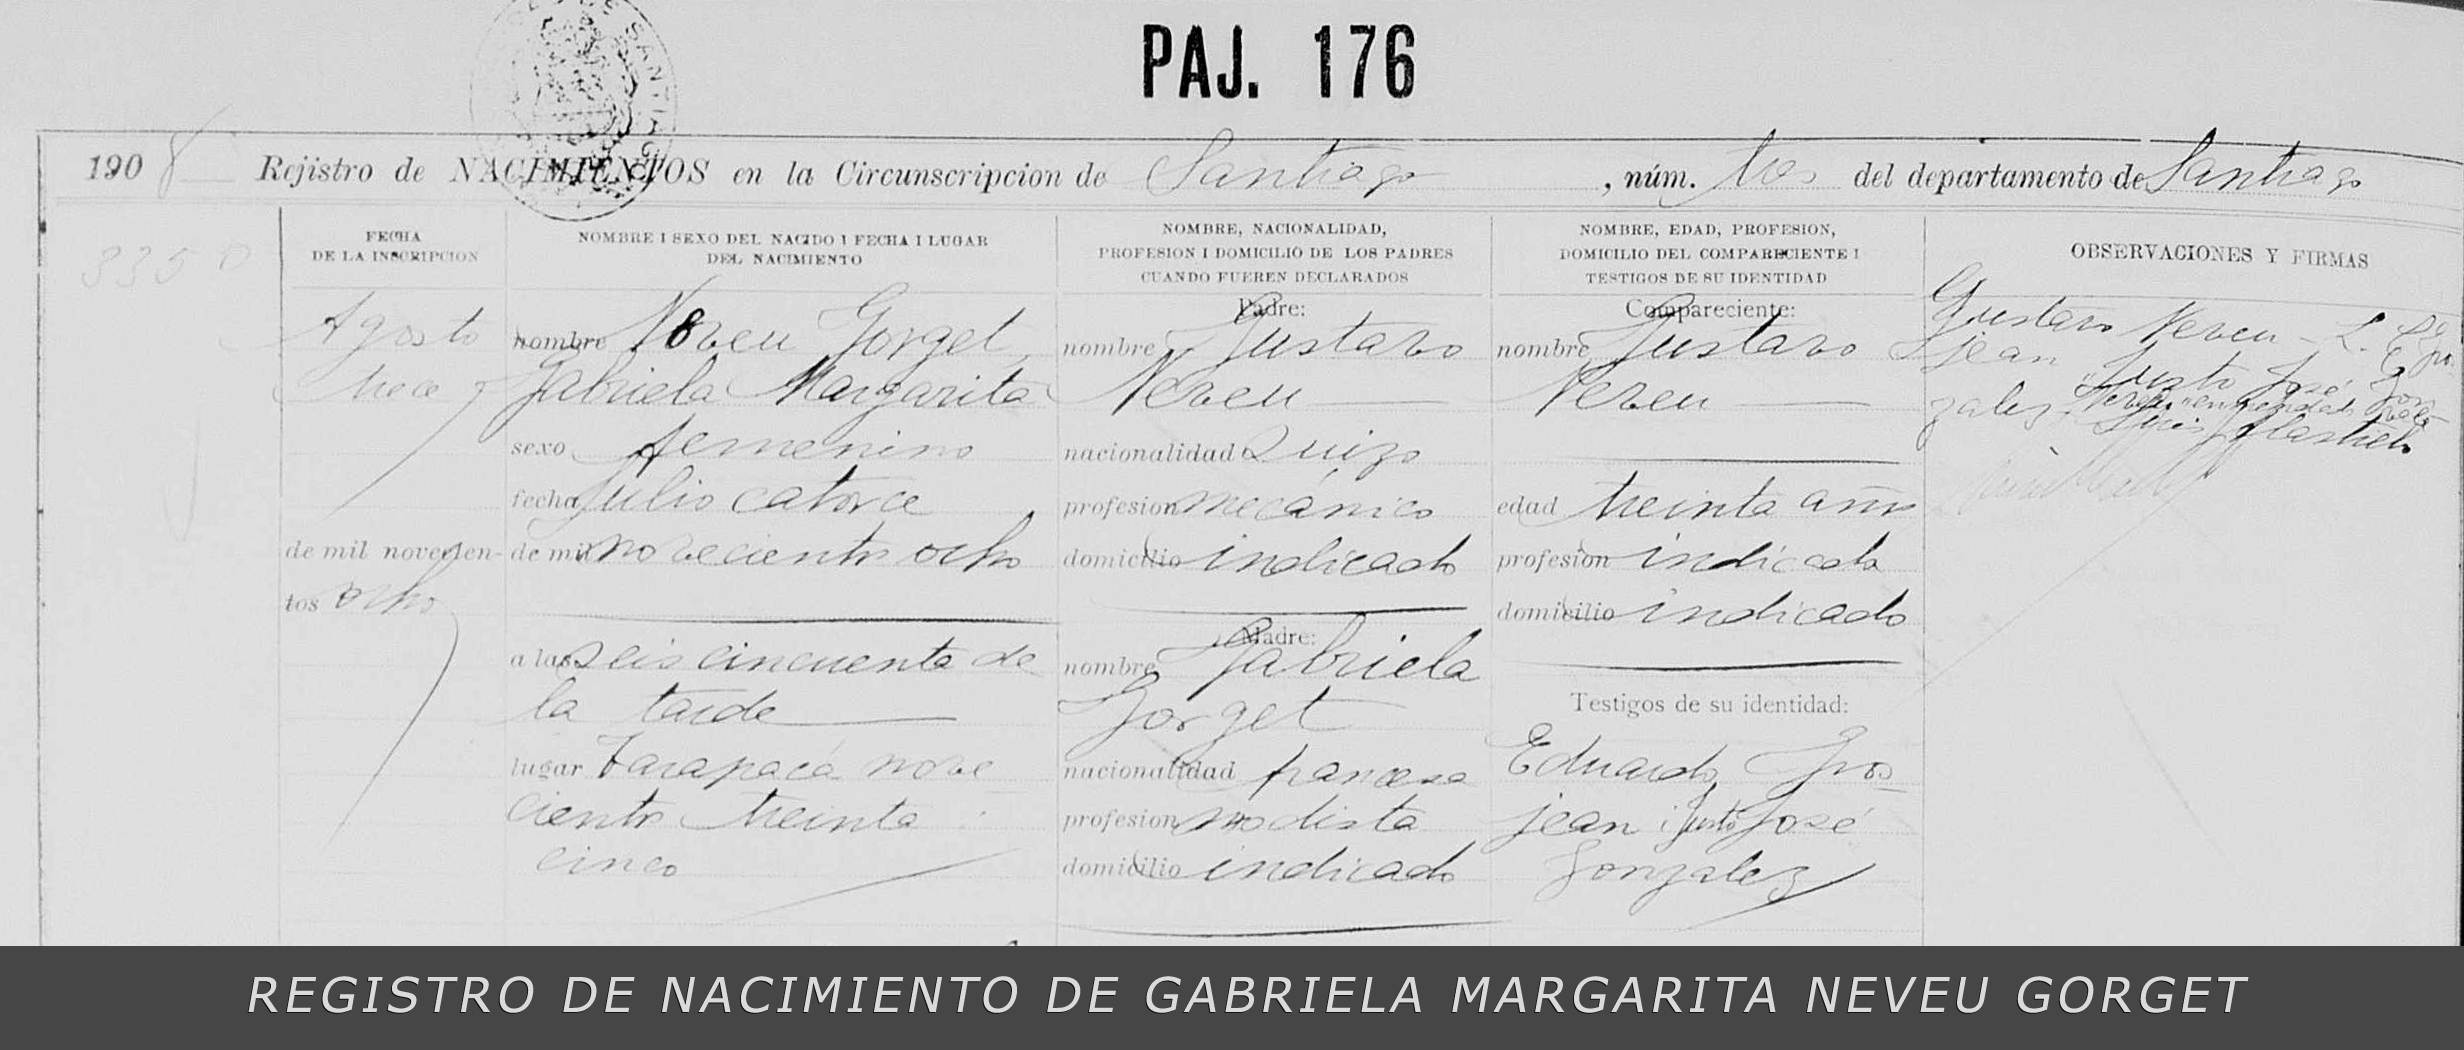 PAJ. 176
1908 Rejistro de NACIMIENTOS en la Circunscripcion de Santiago, núm. tres del departamento de Santiago
335
FECHA
DE LA INSCRIPCION
Agosto
trece
de mil novecien-
tos ocho
NOMBRE I SEXO DEL NACIDO I FECHA I LUGAR
DEL NACIMIENTO
nombre Neveu Gorget
Gabriela Margarita
sexo femenino
fecha Julio catorce
de mil novecientos ocho
a las seis cincuenta de
la tarde
lugar Tarapacá nove
cientos treinta
cinco
NOMBRE, NACIONALIDAD,
PROFESION I DOMICILIO DE LOS PADRES
CUANDO FUEREN DECLARADOS
Padre:
nombre Gustavo
Neveu
nacionalidad Suizo
profesion mecánico
domicilio indicado
Madre:
nombre Gabriela
Gorget
nacionalidad francesa
profesion modista
domicilio indicado
NOMBRE, EDAD, PROFESION,
DOMICILIO DEL COMPARECIENTE I
TESTIGOS DE SU IDENTIDAD
Compareciente:
nombre Gustavo
Neveu
edad treinta años
profesion indicada
domicilio indicado
Testigos de su identidad:
Eduardo Gros
jean i Justo José
Gonzalez
OBSERVACIONES Y FIRMAS
Gustavo Neveu - E. Gros
jean Justo José Gon
zalez "Neveu" enmendado vale
REGISTRO DE NACIMIENTO DE GABRIELA MARGARITA NEVEU GORGET